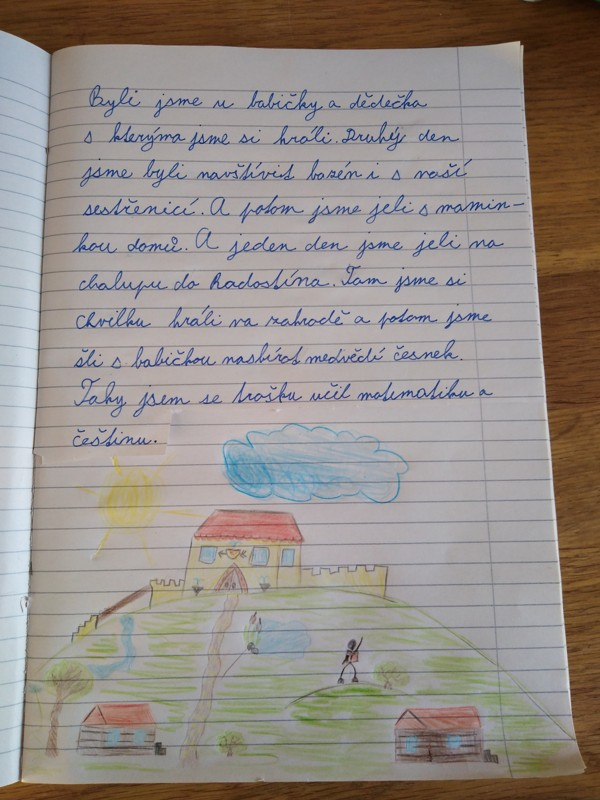 Byli jsme u babičky a dědečka
s kterýma jsme si hráli. Druhý den
jsme byli navštívit bazén i s naší
sestřenicí. A potom jsme jeli s mamin-
kou domů. A jeden den jsme jeli na
chalupu do Radostína. Tam jsme si
chvilku hráli na zahradě a potom jsme
šli s babičkou nasbírat medvědí česnek.
Taky jsem se trošku učil matematiku a
češtinu.